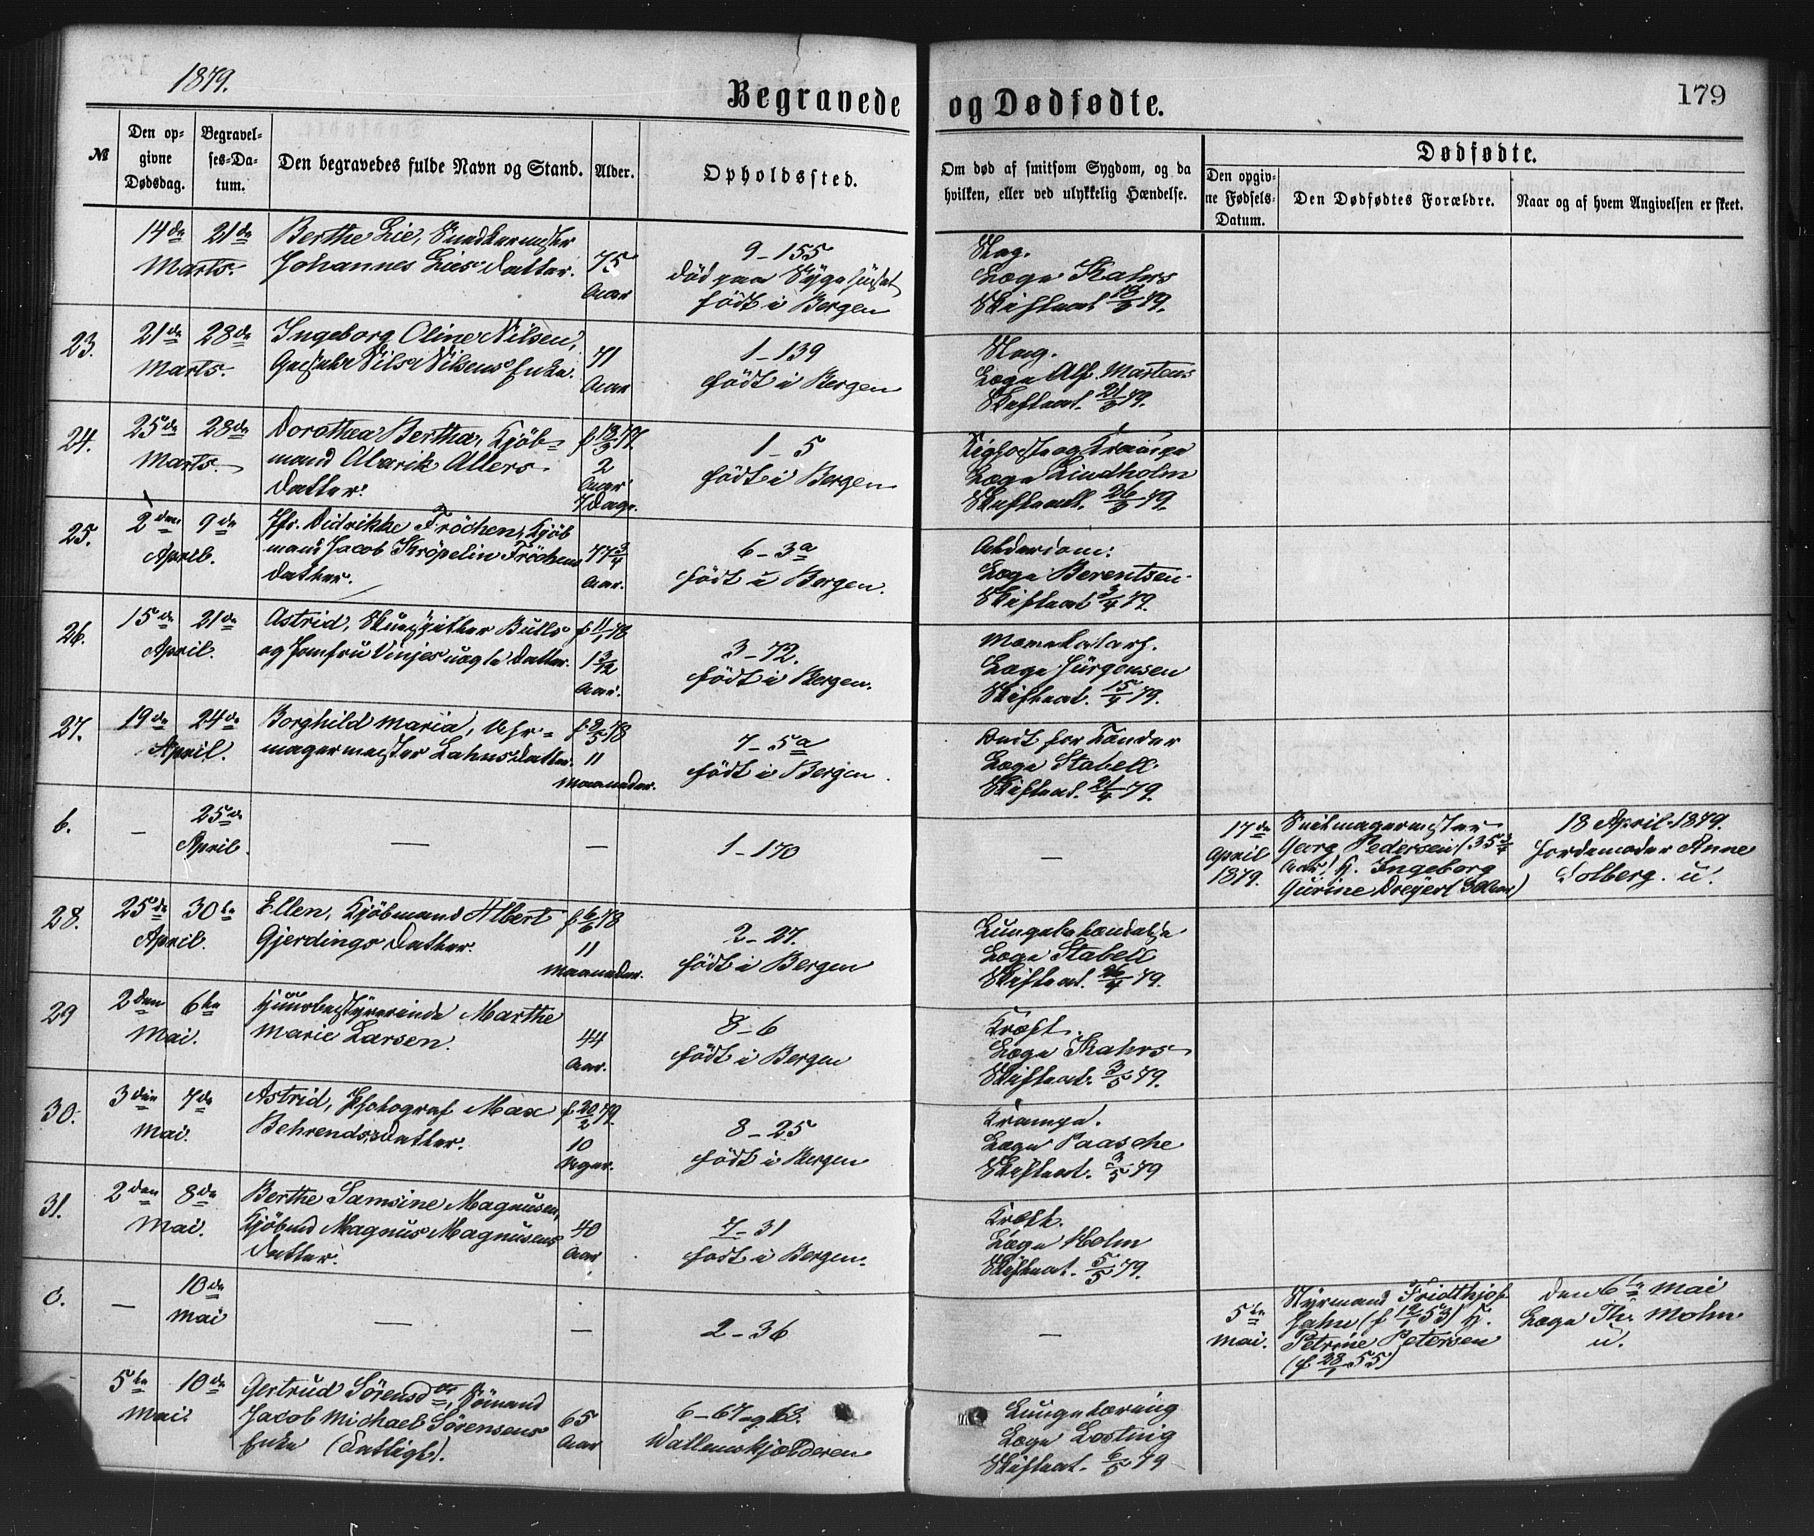 1879.
Begravede og Dødfødte.
179
№
Den opgivne Dødsdag.
Begravelses-Datum.
Den begravedes fulde Navn og Stand.
Alder.
Opholdssted.
Om død af smitsom Sygdom, og da hvilken, eller ved ulykkelig Hændelse.
Dødfødte.
Den opgivne Fødsels-Datum.
Den Dødfødtes Forældre.
Naar og af hvem Angivelsen er skeet.
14de Marts.
21de
Berthe Lie, Snedkermester
Johannes Lies Datter.
75
Aar
9-155
død paa Sygehuset
født i Bergen
Slag.
Læge Kahrs
Skifteat 18/3 79.
23.
21de Marts.
28de
Ingeborg Oline Nilsen,
Nils Nilsens Enke.
71
Aar
1-139
født i Bergen
Slag.
Læge Alf. Martens
Skifteat. 21/3 79.
24.
25de Marts.
28de
Dorothea Bertha, Kjøb=
mand Alarik Allers
Datter.
f 18/3 77.
2
Aar
7 Dage.
1-5
født i Bergen
Kighoste og Krampe
Læge Lindholm
Skifteatt. 26/3 79.
25.
2den April.
9de
Jfr. Didrikke Fröchen, Kjöb
mand Jacob Kröpelin Fröchens
Datter.
77 3/4
Aar.
6-3a
født i Bergen.
Alderdom.
Læge Berentsen.
Skifteat 3/4 79.
26.
15de April.
21de
Astrid, Skuespiller Bulls
og Jomfru Vinjes uægte Datter.
f 11/1 78
1 3/12
Aar.
3-72.
født i Bergen.
Mavekatarh.
Læge Jürgensen
Skifteat. 15/4 79.
27.
19de April.
24de
Borghild Maria, Uhr=
magermester Lahns Datter.
f 8/5 78
11
Maaneder.
7-5a
født i Bergen.
Ondt for Tænder
Læge Stabell.
Skifteat. 21/4 79.
6.
—
25de April.
—
—
1-170
—
17de April 1879.
Georg Pedersen (35 3/4
Aar) H. Ingeborg
Gurine Dreyer
18 April 1879.
Jordemoder Anne
Solberg. u.
28.
25de April.
30te
Ellen, Kjöbmand Albert
Gjerdings Datter.
f 6/6 78
11
Maaneder.
2-27.
født i Bergen
Lungebetændelse
Læge Stabell
Skifteat. 26/4 79.
29
2den Mai.
6te
Huusbestyrerinde Marthe
Marie Larsen.
44
Aar.
8-6
født i Bergen
Kræft.
Læge Kahrs
Skifteat. 3/5 79.
30.
3die Mai.
7de
Astrid, Photograf Max
Behrends Datter.
f 20/2 79.
10
Uger.
8-25
født i Bergen
Krampe.
Læge Paasche
Skifteat. 3/5 79
31.
2den Mai.
8de
Berthe Samsine Magnusen,
Kjöbmd Magnus Magnusens
Datter.
40
Aar
7-31
født i Bergen.
Kræft.
Læge Holm
Skifteat. 5/5 79.
—
10de Mai
—
—
2-36
—
5te Mai.
Styrmand Fridthjof
Jahn (f 12/1 53) H.
Petrine Petersen
(f. 28/1 55)
den 6te Mai
Læge Th. Mohn
u.
5te Mai.
10de
Gertrud Sörensdr, Sömand
Jacob Michael Sörensens
Enke (Fattigl.).
65
Aar
6-67 og 68.
Wallemskjælderen
Lungetæring
Læge Losting
Skifteat. 6/5 79